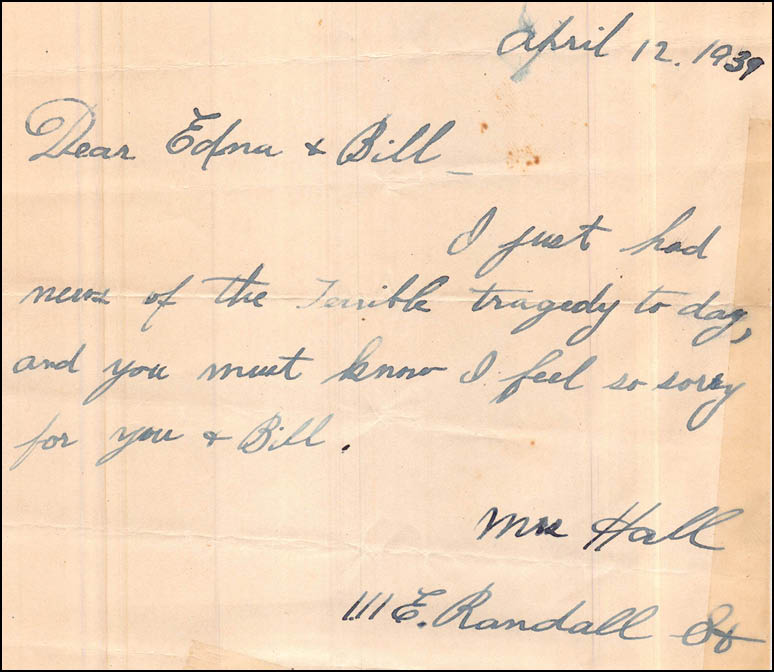 April 12. 1939
Dear Edna & Bill –
I just had
news of the Terrible tragedy to day,
and you must know I feel so sorry
for you & Bill.
Mrs Hall
111 E. Randall St